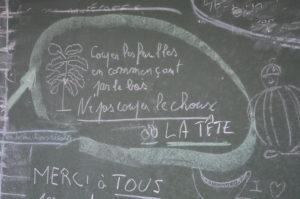 Couper les feuilles
en commençant
par le bas.
Ne pas couper le choux
OU LA TÊTE
MERCI à TOUS
I